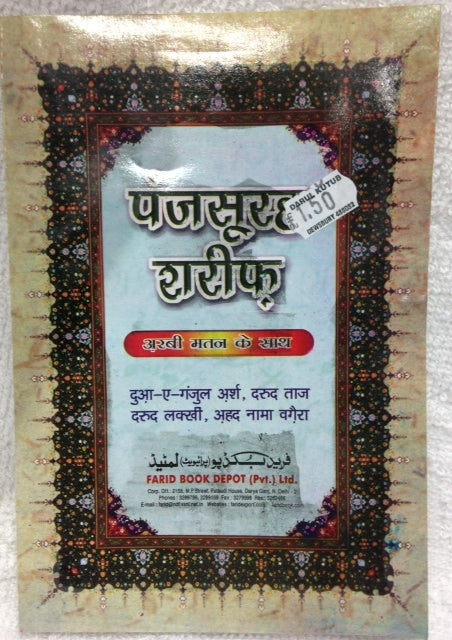 पंजसूरह
DARUL KUTUB
1.50
DEWSBURY
शरीफ़
अ़रबी मतन के साथ
दुआ़-ए-गंजुल अ़र्श, दरुद ताज
दरुद लक्खी, अ़हद नामा वग़ैरा
فرید بکڈپو (پرائیویٹ) لمٹیڈ
FARID BOOK DEPOT (Pvt.) Ltd.
Corp. Off.: 2158, M.P. Street, Pataudi House, Darya Ganj, N. Delhi - 2